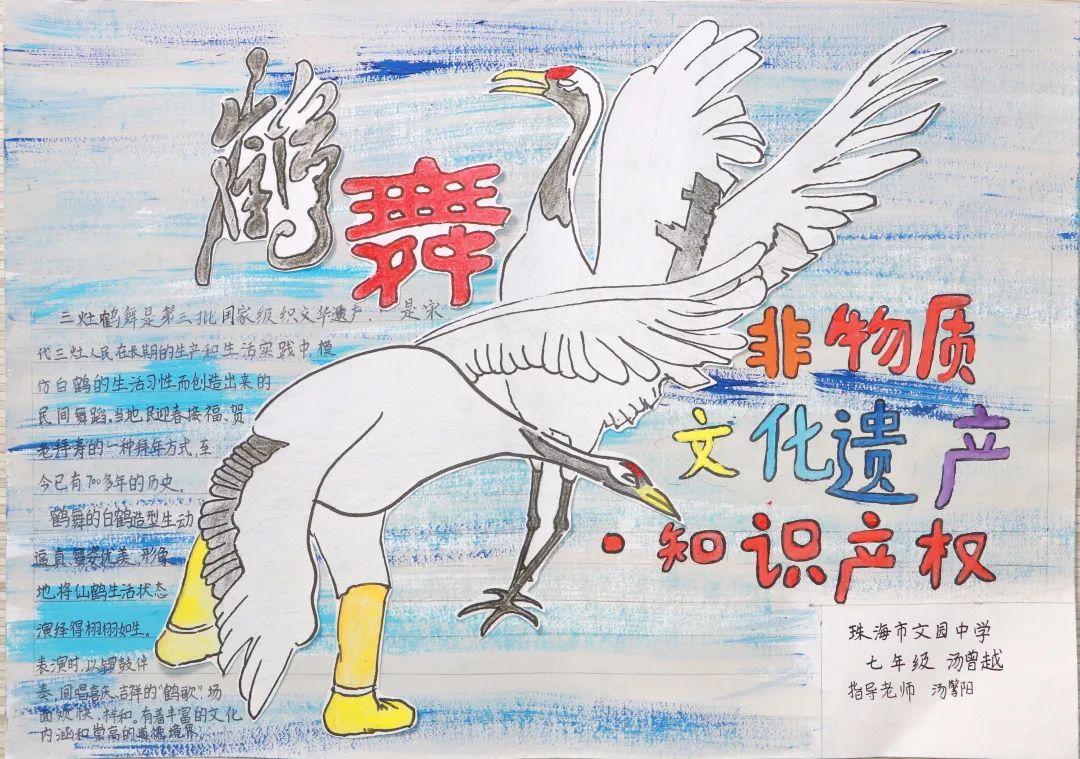 鹤舞
三灶鹤舞是第三批国家级织文华遗产，是宋
代三灶人民在长期的生产和生活实践中,模
仿白鹤的生活习性而创造出来的
民间舞蹈。当地民迎春接福、贺
老拜寿的一种拜年方式,至
今已有700多年的历史。
鹤舞的白鹤造型生动
逼真,舞姿优美,形象
地将仙鹤生活状态
演绎得栩栩如生。
表演时,以锣鼓伴
奏,间唱喜庆、吉祥的“鹤歌”场
面欢快、祥和。有着丰富的文化
内涵和崇高的道德境界。
非物质
文化遗产
·知识产权
珠海市文园中学
七年级 汤曾越
指导老师 汤 阳